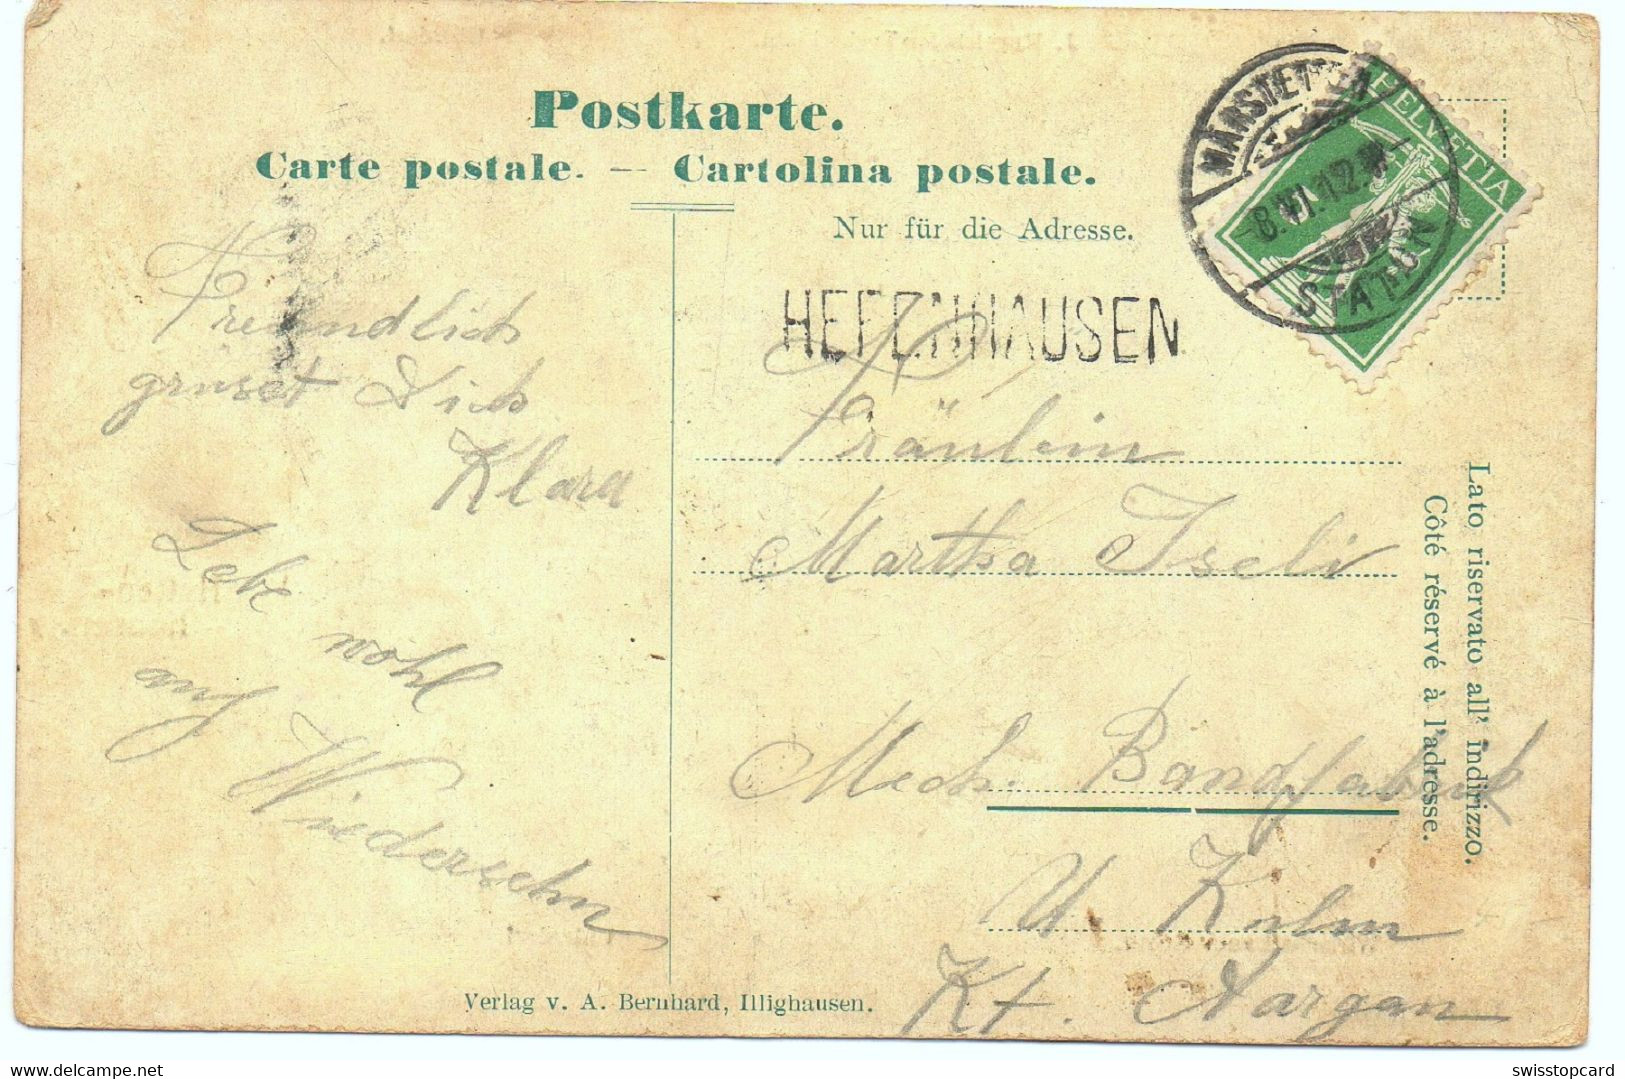 Postkarte.
Carte postale. — Cartolina postale.
Nur für die Adresse.
HELVETIA
MÄRSTETTEN
8.VI.12.
STATION
HEFENHAUSEN
Freundlich
grüset Dich
Klara
Lebe wohl
auf Wiedersehn
Fräulein
Martha Iseli
Mech. Bandfabrik
U. Kulm
Kt. Aargau
Lato riservato all' indirizzo.
Côté réservé à l'adresse.
Verlag v. A. Bernhard, Illighausen.
swisstopcard
delcampe.net